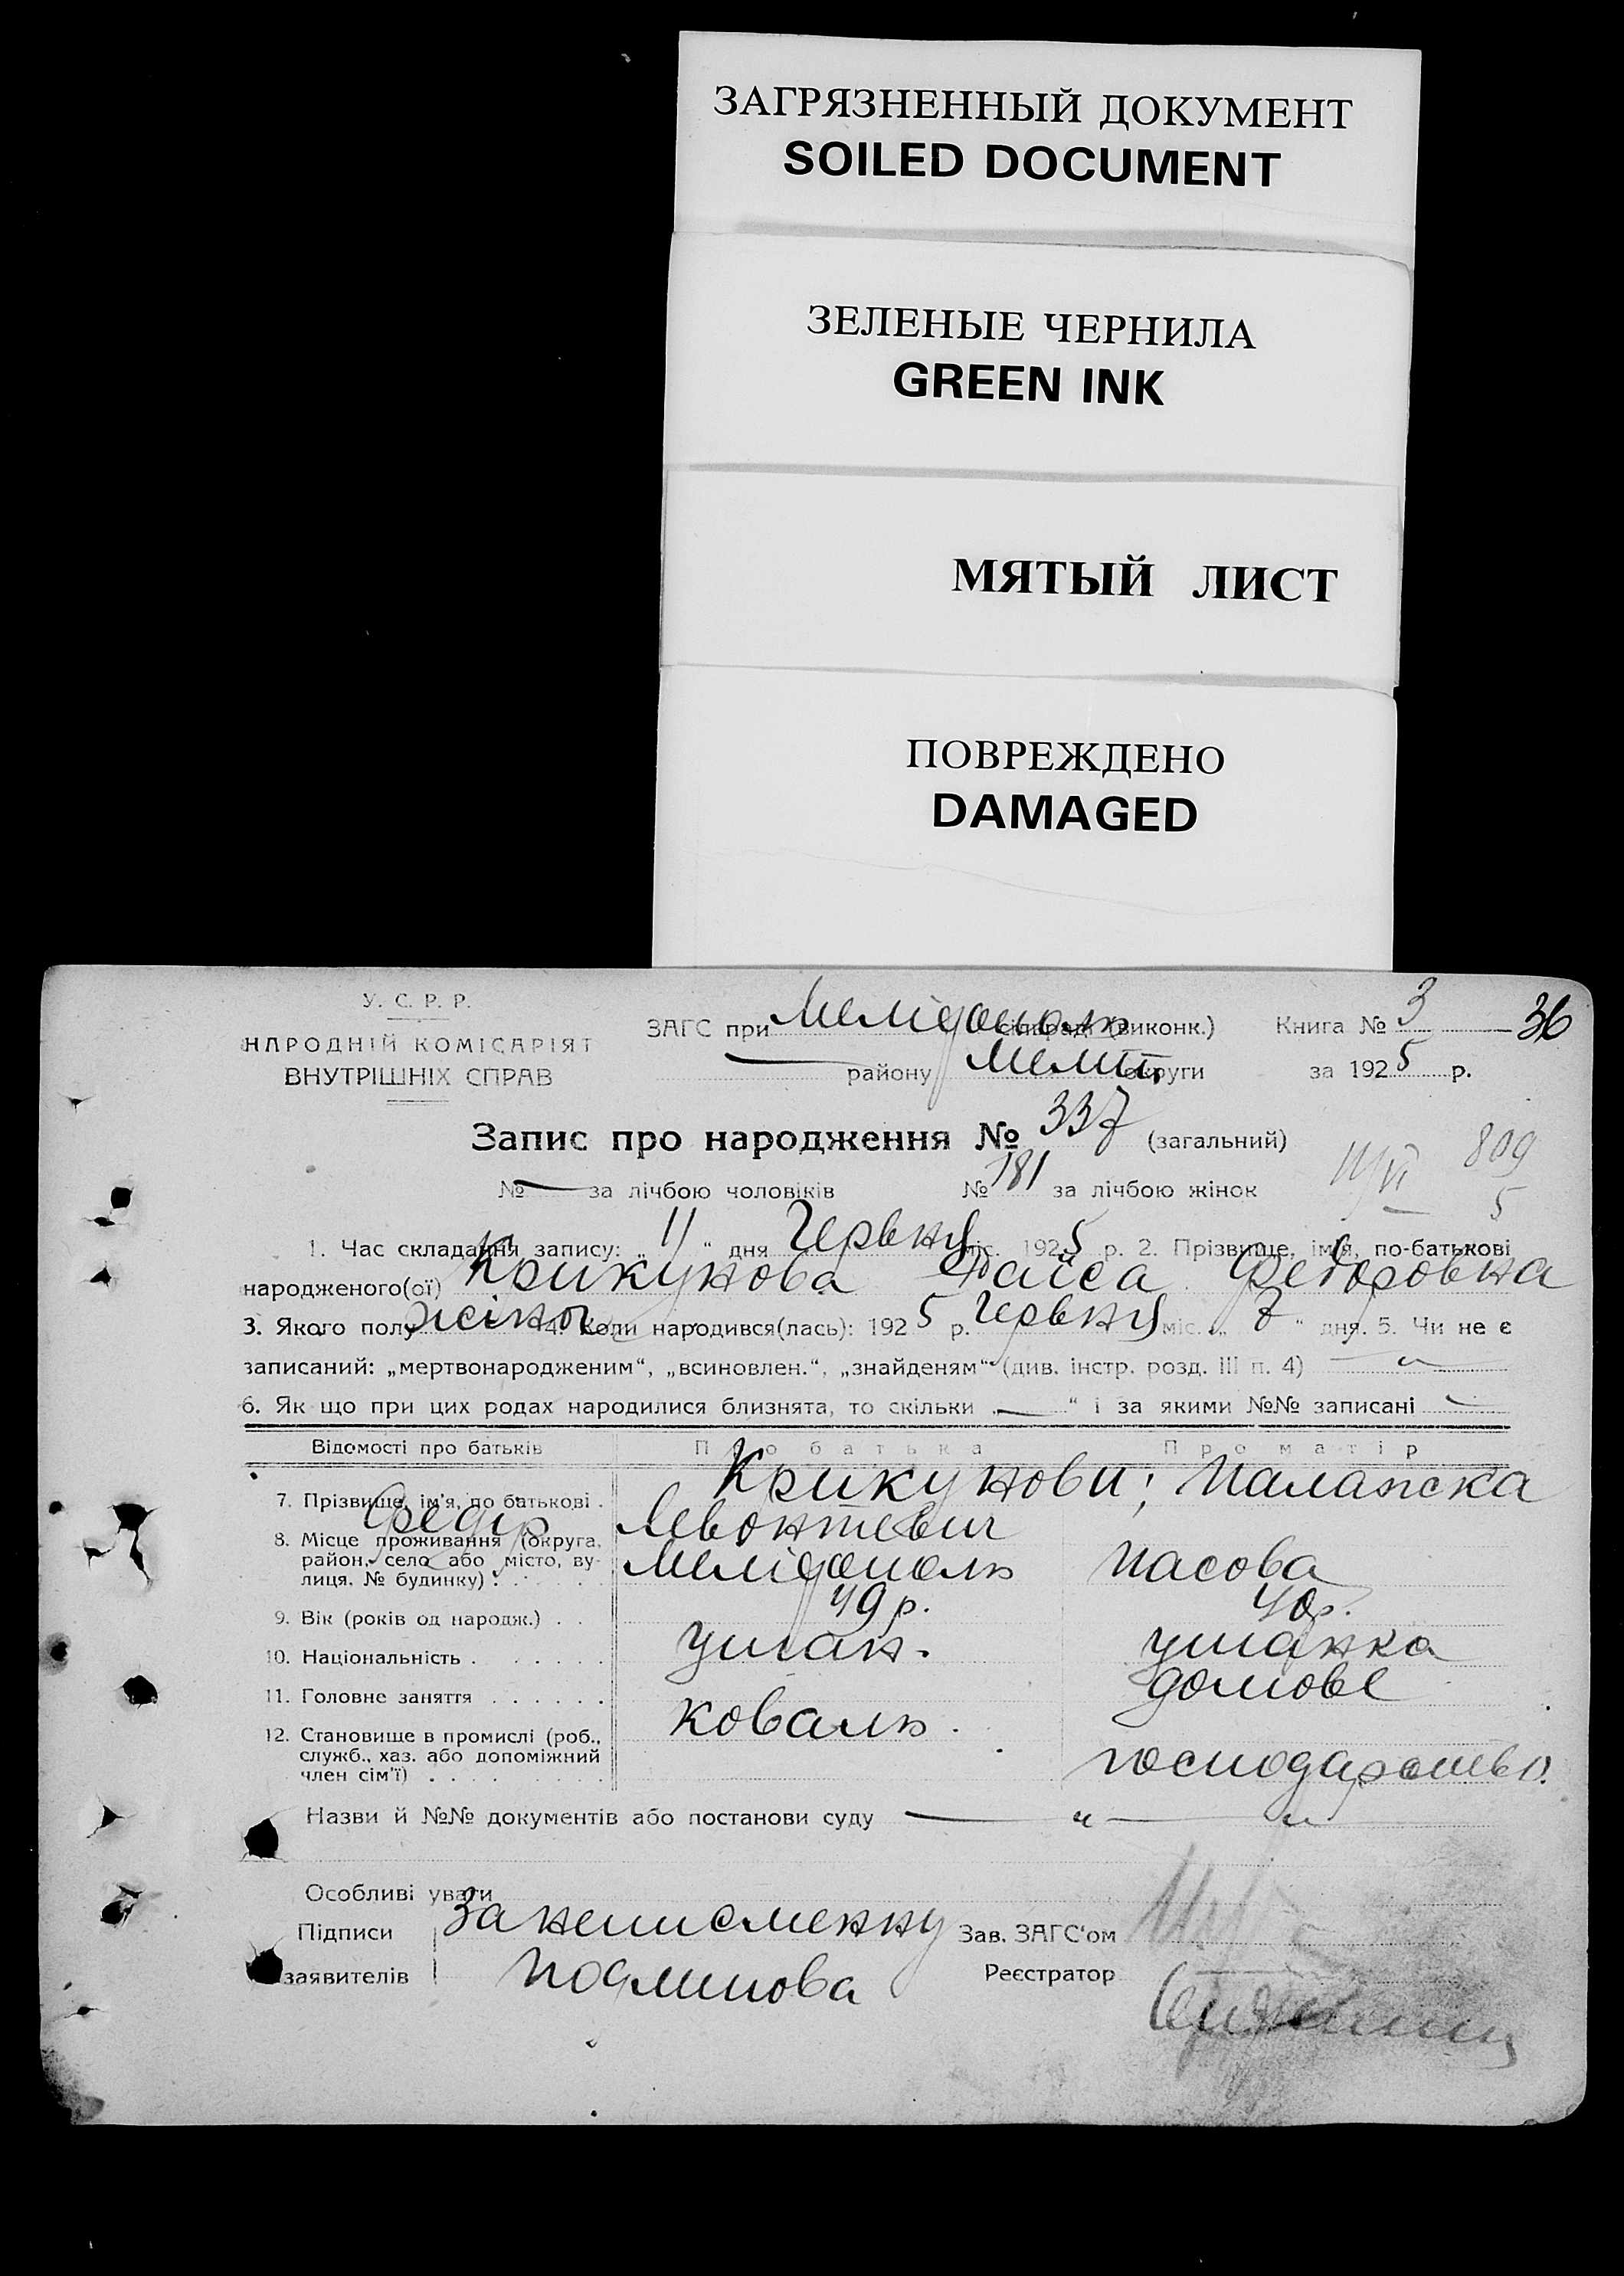 ЗАГРЯЗНЕННЫЙ ДОКУМЕНТ
SOILED DOCUMENT
ЗЕЛЕНЫЕ ЧЕРНИЛА
GREEN INK
МЯТЫЙ ЛИСТ
ПОВРЕЖДЕНО
DAMAGED
У. С. Р. Р.
НАРОДНІЙ КОМІСАРІЯТ
ВНУТРІШНІХ СПРАВ
ЗАГС при Мелідополь сільраді (виконк.) Книга № 3 36
району Меліт. округи за 1925 р.
Запис про народження № 337 (загальний)
№ — за лічбою чоловіків № 181 за лічбою жінок
11/VI 809
5
1. Час складання запису: „ 11 “ дня Червня міс. 1925 р. 2. Прізвище, ім'я, по-батькові
народженого(ої) Крикунова Раїса Федоровна
3. Якого полу жіноч. 4. Коли народився(лась): 1925 р. Червня міс. „ 7 “ дня. 5. Чи не є
записаний: „мертвонародженим“, „всиновлен.“, „знайденям“ (див. інстр. розд. III п. 4) — „
6. Як що при цих родах народилися близнята, то скільки „ — “ і за якими №№ записані —
Відомості про батьків Про батька Про матір
7. Прізвище, ім'я, по батькові . Крикунови; Палажска
Федір Левонтевич
8. Місце проживання (округа,
район, село або місто, ву-
лиця, № будинку) : Мелідополь Пасова
9. Вік (років од народж.) . . 49 р. 40 р.
10. Національність . . . . . . . укан. украинка
11. Головне заняття . . . . . . домове
12. Становище в промислі (роб.,
служб., хаз. або допоміжний
член сім'ї) . . . . . . . . коваль. господарство.
Назви й №№ документів або постанови суду — „ — „
Особливі уваги
Підписи За неписменну Зав. ЗАГС'ом
заявителів Реєстратор